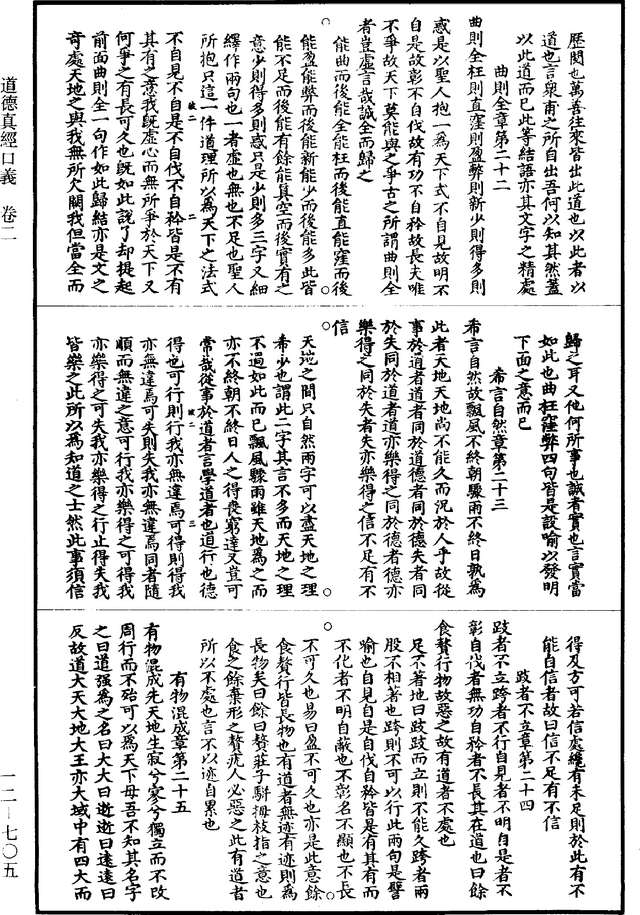 歷閱也萬善往來皆出此道也以此者以
道也言衆甫之所自出吾何以知其然蓋
以此道而已此等結語亦其文字之精處
曲則全章第二十二
曲則全枉則直窪則盈弊則新少則得多則
惑是以聖人抱一爲天下式不自見故明不
自是故彰不自伐故有功不自矜故長夫唯
不爭故天下莫能與之爭古之所謂曲則全
者豈虛言哉誠全而歸之
能曲而後能全能枉而後能直能窪而後
能盈能弊而後能新能少而後能多此皆
能不足而後能有餘能真空而後實有之
意少則得多則惑只是少則多三字又細
繹作兩句也一者虛也無也不足也聖人
所抱只這一件道理所以爲天下之法式
不自見不自是不自伐不自矜皆是不有
其有之意我既虛心而無所爭於天下又
何爭之有長可久也既如此說了却提起
前面曲則全一句作如此歸結亦是文之
奇處天地之與我無所欠闕我但當全而
歸之耳又他何所事也誠者實也言實當
如此也曲枉窪弊四句皆是設喻以發明
下面之意而已
希言自然章第二十三
希言自然故飄風不終朝驟雨不終日孰爲
此者天地天地尚不能久而況於人乎故從
事於道者道者同於道德者同於德失者同
於失同於道者道亦樂得之同於德者德亦
樂得之同於失者失亦樂得之信不足有不
信
天地之間只自然兩字可以盡天地之理
希少也謂此二字其言不多而天地之理
不過如此而已飄風驟雨雖天地爲之而
亦不終朝不終日人之得喪窮達又豈可
常哉從事於道者言學道者也道行也德
得也可行則行我亦無違焉可得則得我
亦無違焉可失則失我亦無違焉同者隨
順而無違之意可行我亦樂得之可得我
亦樂得之可失我亦樂得之行止得失我
皆樂之此所以爲知道之士然此事須信
得及方可若信處纔有未足則於此有不
能自信者故曰信不足有不信
跂者不立章第二十四
跂者不立跨者不行自見者不明自是者不
彰自伐者無功自矜者不長其在道也曰餘
食贅行物故惡之故有道者不處也
足不著地曰跂跂而立則不能久跨者兩
股不相著也跨則不可以行此兩句是譬
喻也自見自是自伐自矜皆是有其有而
不化者不明自蔽也不彰名不顯也不長
不可久也易曰盈不可久也亦是此意餘
食贅行皆長物也有道者無迹有迹則爲
長物矣曰餘曰贅莊子駢拇枝指之意也
食之餘棄形之贅疣人必惡之此有道者
所以不處也言不以迹自累也
有物混成章第二十五
有物混成先天地生寂兮寥兮獨立而不改
周行而不殆可以爲天下母吾不知其名字
之曰道强爲之名曰大大曰逝逝曰遠遠曰
反故道大天大地大王亦大域中有四大而
道德真經口義 卷二
一二—七〇五